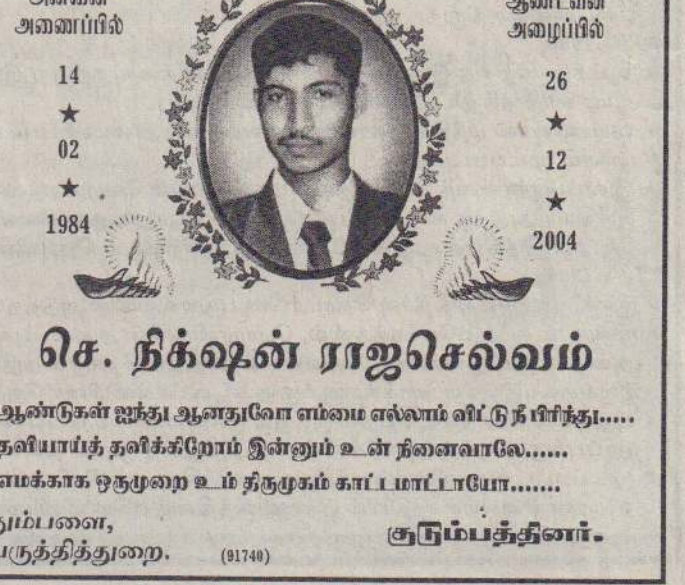 அணைப்பில்
14
02
1984
ஆண்டவன்
அழைப்பில்
26
12
2004
செ. நிக்ஷன் ராஜசெல்வம்
ஆண்டுகள் ஐந்து ஆனதுவோ எம்மை எல்லாம் விட்டு நீ பிரிந்து.....
தவியாய்த் தவிக்கிறோம் இன்னும் உன் நினைவாலே......
எமக்காக ஒருமுறை உம் திருமுகம் காட்டமாட்டாயோ.......
தும்பளை,
பருத்தித்துறை. (91740) குடும்பத்தினர்.